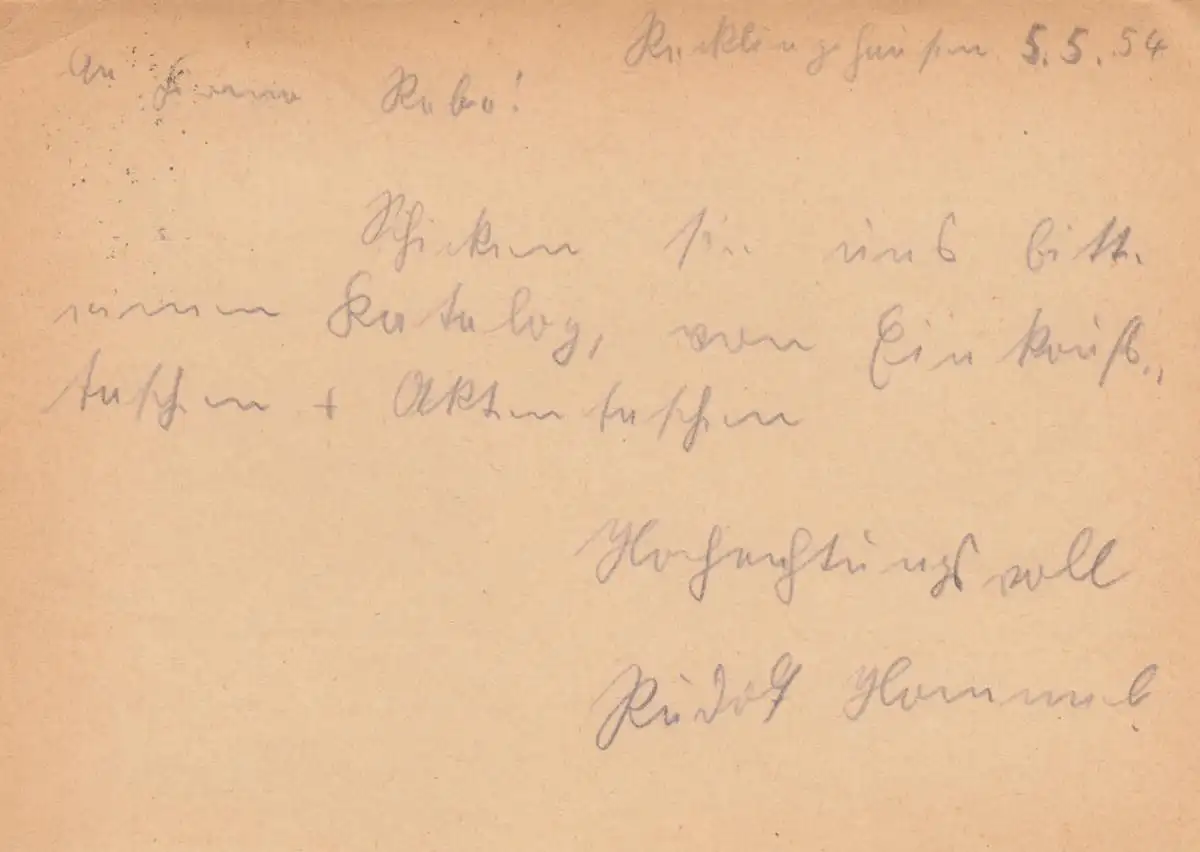 Recklinghausen 5.5.54
An Firma Rabo!
Schicken sie uns bitte
einen Katalog, von Einkaufs-
taschen + Aktentaschen
Hochachtungsvoll
Rudolf Hommel